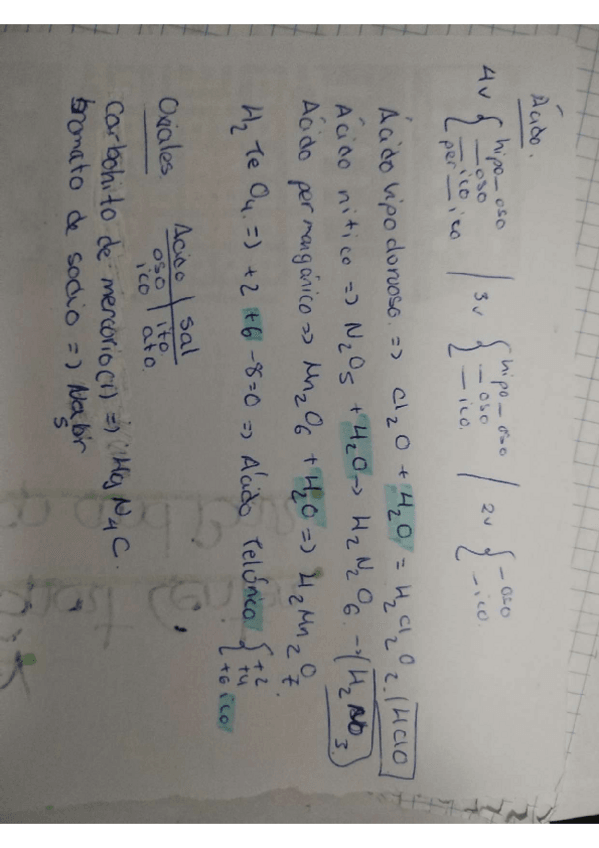 Ácido.
4v { hipo_oso / 3v { hipo_oso / 2v { _oso
_oso _oso _ico.
_ico _ico.
per_ico
Ácido hipocloroso. => Cl2O + H2O = H2Cl2O2. (HClO
Ácido nítico => N2O5 + H2O -> H2N2O6. -> (H2NO3.)
Ácido permangánico => Mn2O6 + H2O => H2Mn2O7.
H2TeO4. => +2 +6 -8=0 => Ácido Telúrico { +2
+4
+6 ico
Oxiales. Ácido | sal
oso | ito
ico | ato.
Carbohito de mercúrio(1) => Hg N4C.
bromato de sodio => Nabr
5